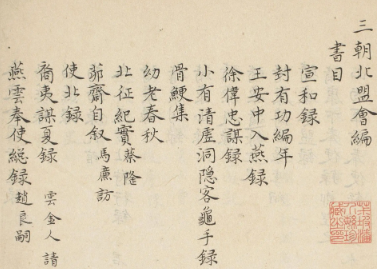 三朝北盟會編
書目
宣和錄
封有功編年
王安中入燕錄
徐偉忠謀錄
小有清虛洞隱客龜手錄
骨鯁集
幼老春秋
北征紀實 蔡絛
茆齋自叙 馬廣訪
使北錄
裔夷謀夏錄 雲金人請
燕雲奉使總錄 趙良嗣